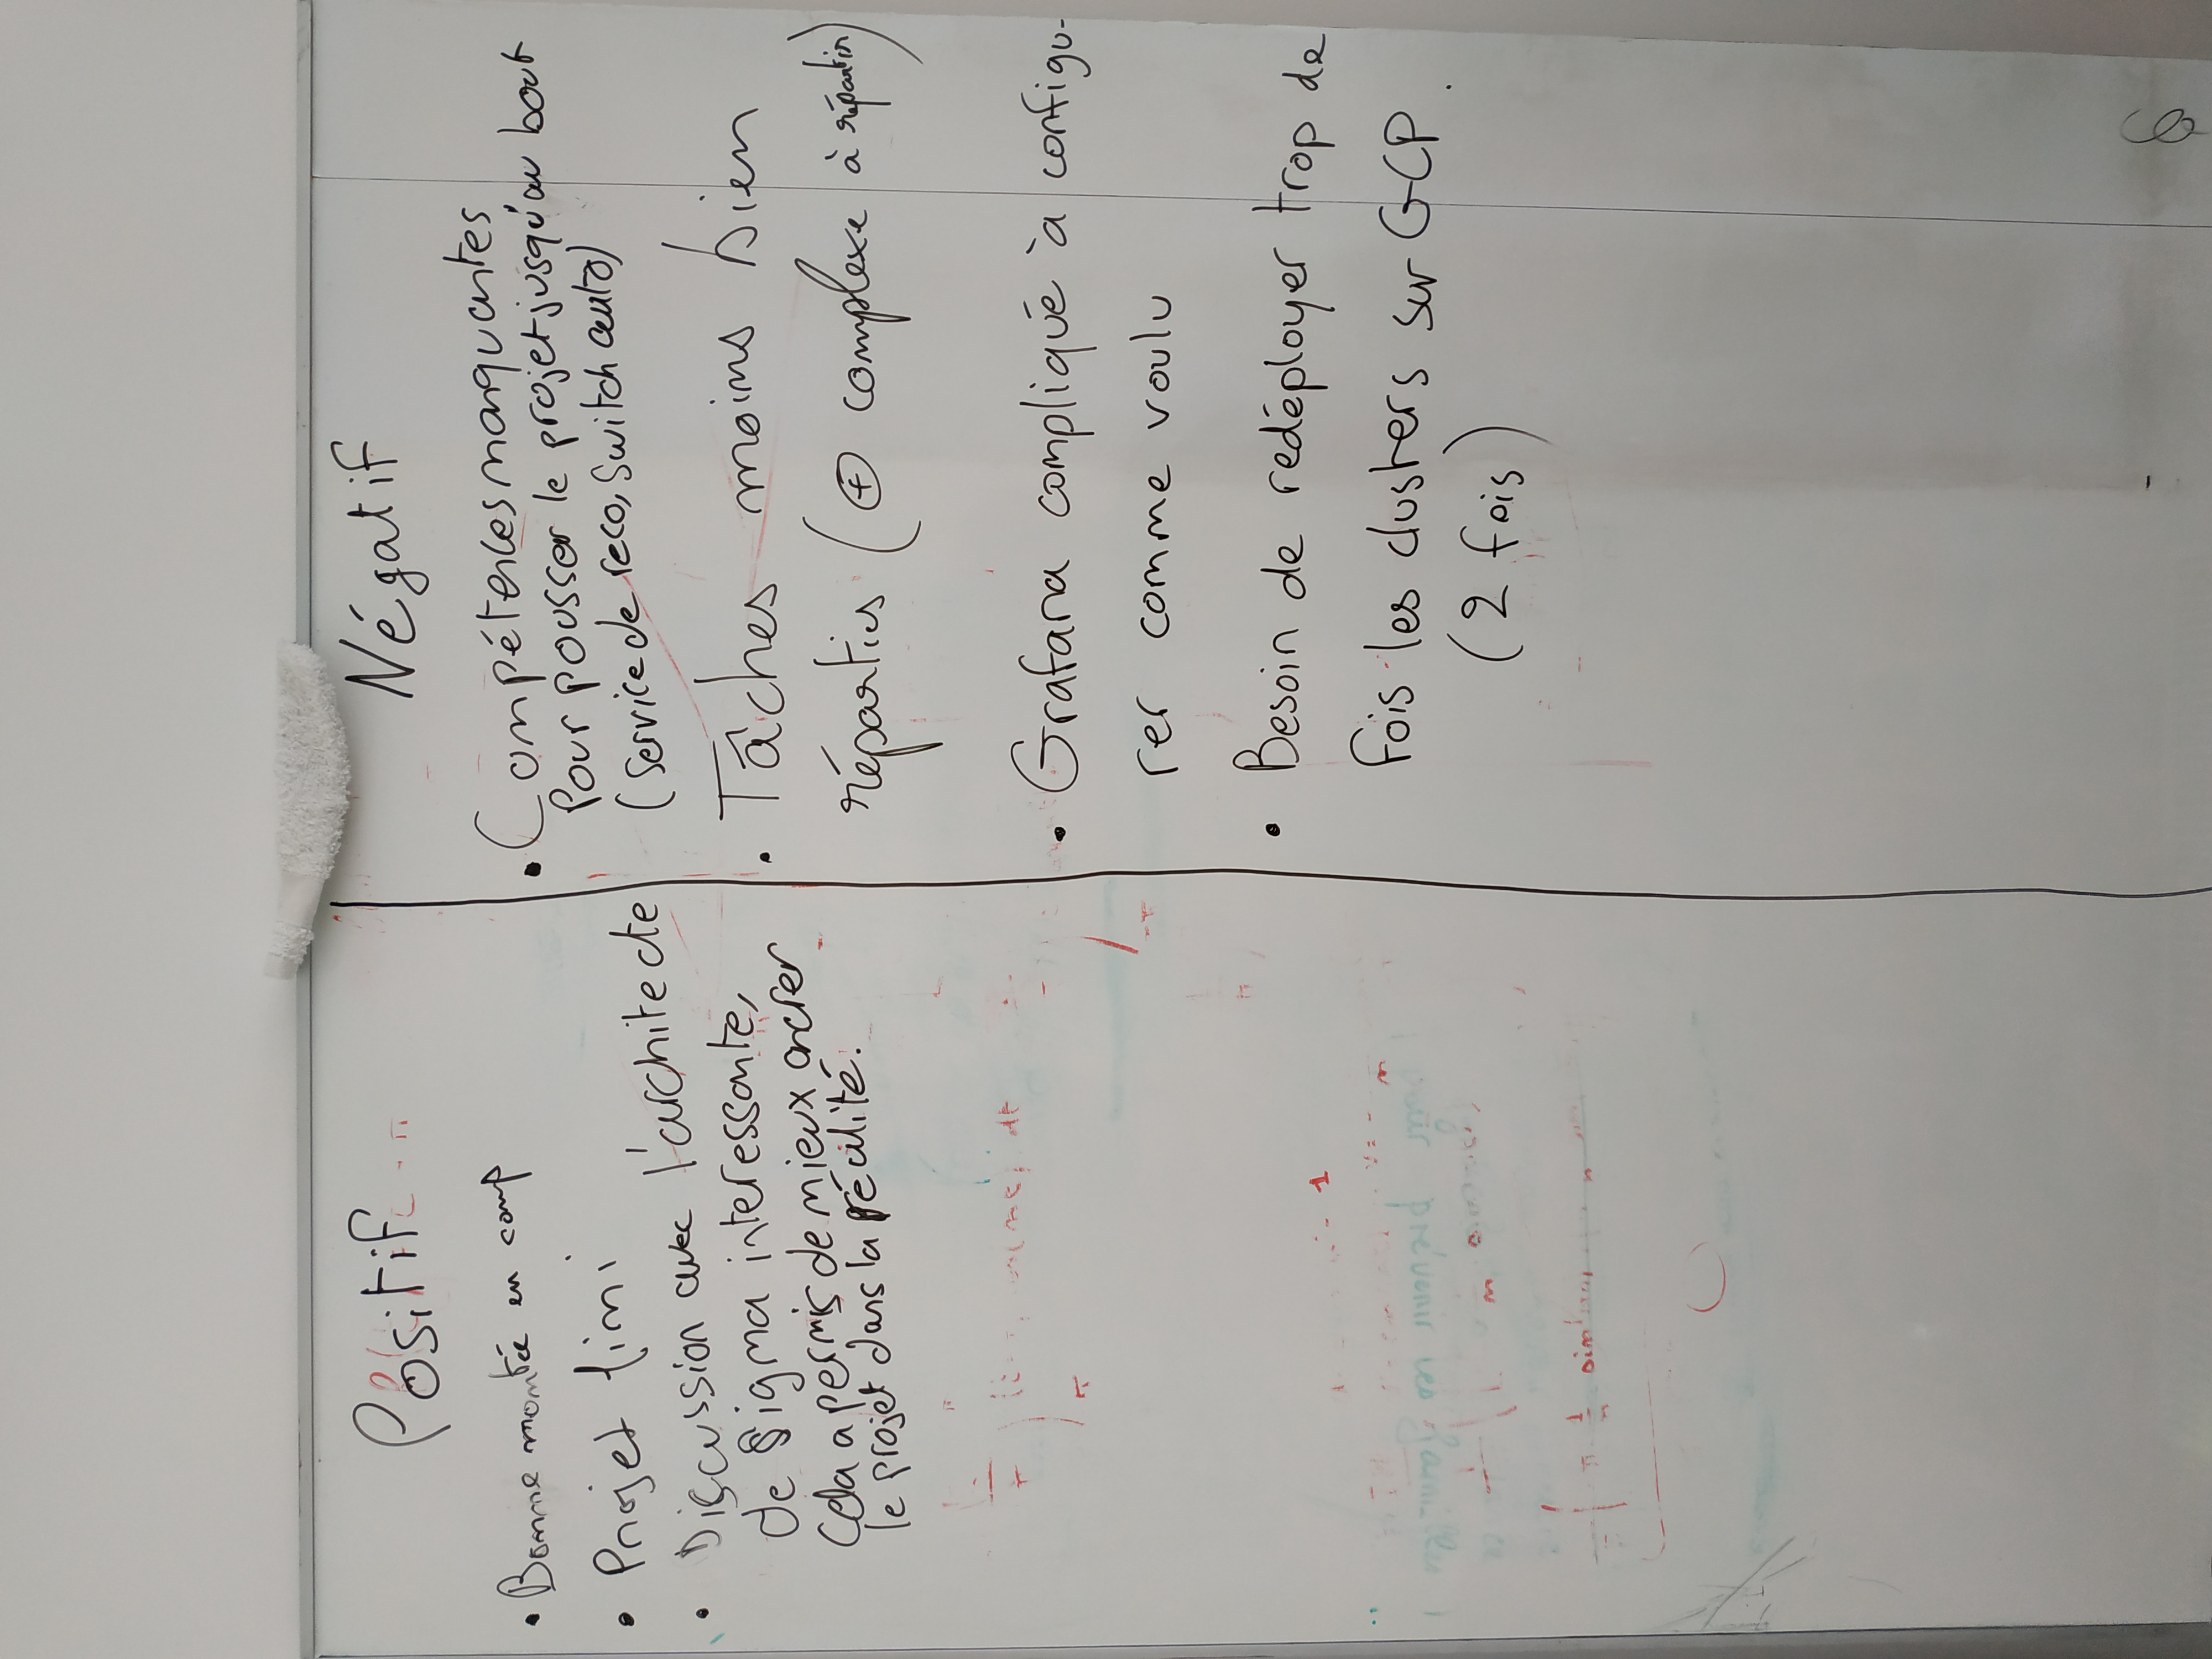 Positif
• Bonne montée en comp
• Projet fini
• Discussion avec l'architecte
de Sigma interessante,
cela a permis de mieux ancrer
le projet dans la réalité.
Négatif
• Compétences manquantes
Pour pousser le projet jusqu'au bout
(service de reco, Switch auto)
• Tâches moins bien
réparties (⊕ complexe à répartir)
• Grafana compliqué à configu-
rer comme voulu
• Besoin de redéployer trop de
fois les clusters sur GCP.
(2 fois)